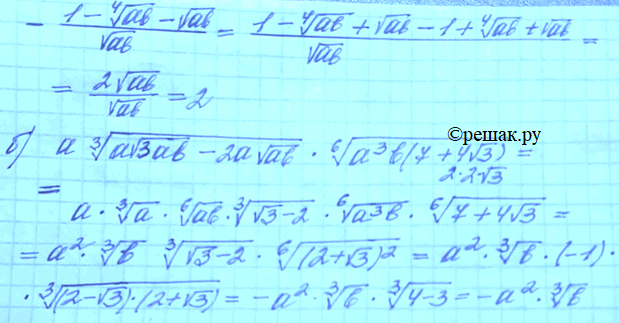 - (1 - ⁴√ab - √ab)/√ab = (1 - ⁴√ab + √ab - 1 + ⁴√ab + √ab)/√ab =
= 2√ab/√ab = 2
©решак.ру
б) a ∛(a√3ab - 2a√ab) · ⁶√(a³b(7 + 4√3)) =
2·2√3
=
a · ∛a · ⁶√ab · ∛(√3-2) · ⁶√(a³b) · ⁶√(7 + 4√3) =
= a² · ∛b ∛(√3-2) · ⁶√((2+√3)²) = a² · ∛b · (-1) ·
· ∛((2-√3)·(2+√3)) = -a² · ∛b · ∛(4-3) = -a² · ∛b